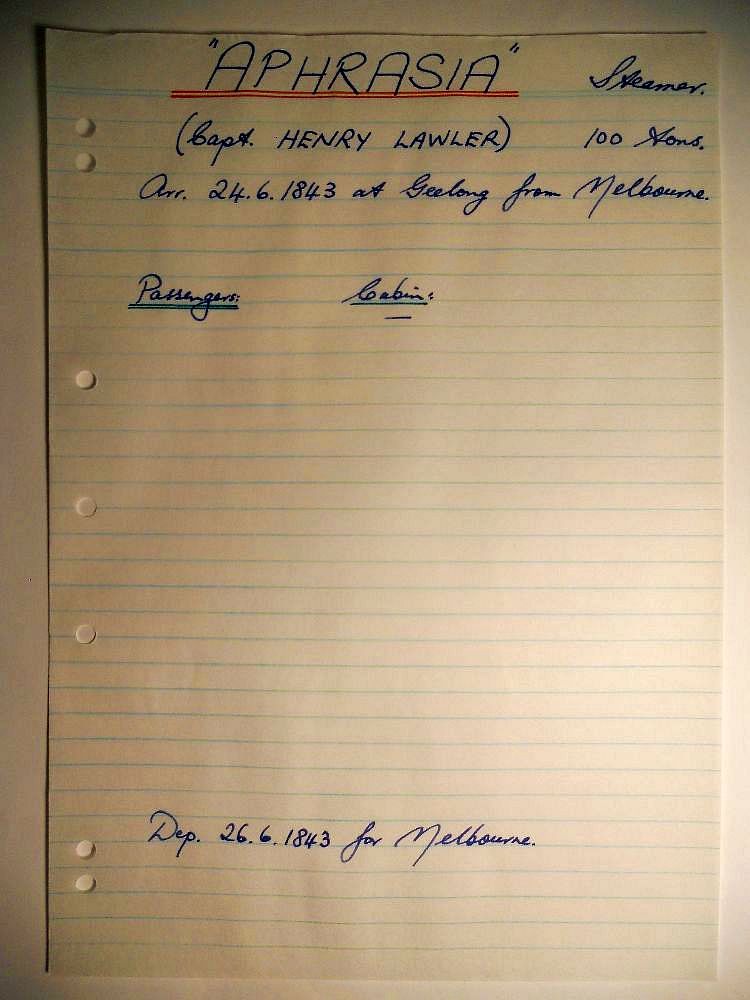 "APHRASIA" Steamer.
(Capt. HENRY LAWLER) 100 Tons.
Arr. 24.6.1843 at Geelong from Melbourne.
Passengers: Cabin:
—
Dep. 26.6.1843 for Melbourne.